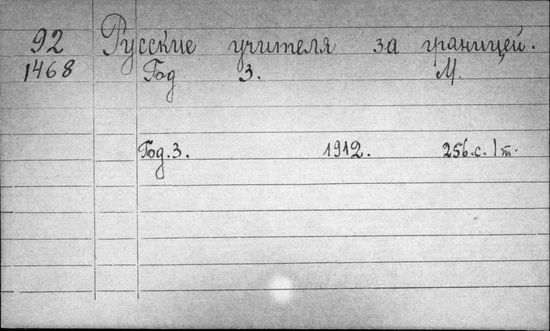 92 Русские учителя за границей.
1468 Год 3. М.
Год. 3. 1912. 256. с. 1 т.